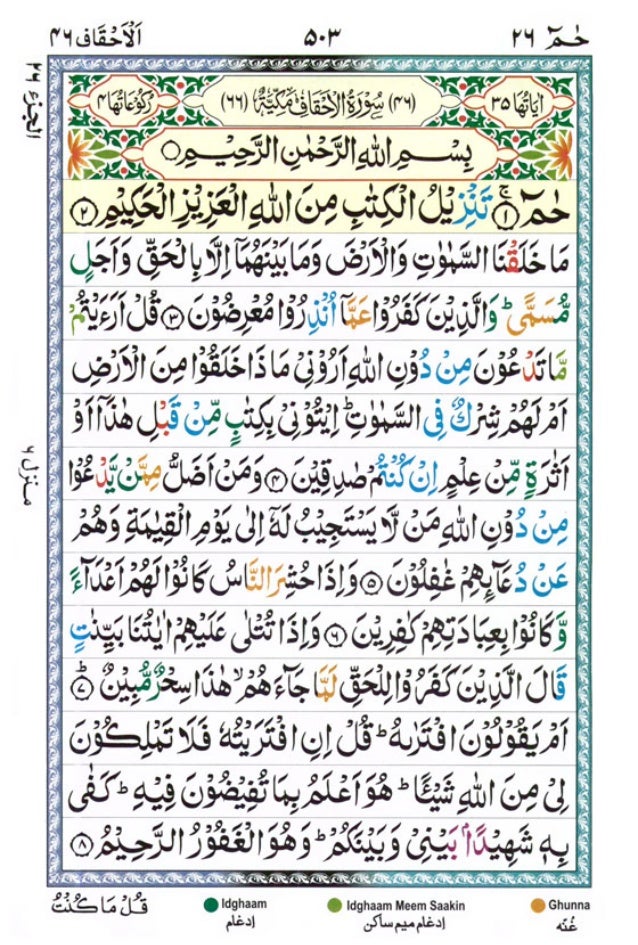 حٰمٓ ٢٦ ٥٠٣ اَلْاَحْقَاف ٤٦
الجزء ٢٦
اٰيَاتُهَا ٣٥ (٤٦) سُوْرَةُ الْاَحْقَافِ مَكِّيَّةٌ (٦٦) رُكُوْعَاتُهَا ٤
بِسْمِ اللّٰهِ الرَّحْمٰنِ الرَّحِيْمِ ○
حٰمٓ ۚ ﴿١﴾ تَنْزِيْلُ الْكِتٰبِ مِنَ اللّٰهِ الْعَزِيْزِ الْحَكِيْمِ ﴿٢﴾
مَا خَلَقْنَا السَّمٰوٰتِ وَالْاَرْضَ وَمَا بَيْنَهُمَاۤ اِلَّا بِالْحَقِّ وَاَجَلٍ
مُّسَمًّى ؕ وَالَّذِيْنَ كَفَرُوْا عَمَّاۤ اُنْذِرُوْا مُعْرِضُوْنَ ﴿٣﴾ قُلْ اَرَءَيْتُمْ
مَّا تَدْعُوْنَ مِنْ دُوْنِ اللّٰهِ اَرُوْنِيْ مَاذَا خَلَقُوْا مِنَ الْاَرْضِ
اَمْ لَهُمْ شِرْكٌ فِى السَّمٰوٰتِ ؕ اِيْتُوْنِيْ بِكِتٰبٍ مِّنْ قَبْلِ هٰذَاۤ اَوْ
اَثٰرَةٍ مِّنْ عِلْمٍ اِنْ كُنْتُمْ صٰدِقِيْنَ ﴿٤﴾ وَمَنْ اَضَلُّ مِمَّنْ يَّدْعُوْا
منزل ٦
مِنْ دُوْنِ اللّٰهِ مَنْ لَّا يَسْتَجِيْبُ لَهٗۤ اِلٰى يَوْمِ الْقِيٰمَةِ وَهُمْ
عَنْ دُعَآئِهِمْ غٰفِلُوْنَ ﴿٥﴾ وَاِذَا حُشِرَ النَّاسُ كَانُوْا لَهُمْ اَعْدَآءً
وَّكَانُوْا بِعِبَادَتِهِمْ كٰفِرِيْنَ ﴿٦﴾ وَاِذَا تُتْلٰى عَلَيْهِمْ اٰيٰتُنَا بَيِّنٰتٍ
قَالَ الَّذِيْنَ كَفَرُوْا لِلْحَقِّ لَمَّا جَآءَهُمْ ۙ هٰذَا سِحْرٌ مُّبِيْنٌ ؕ ﴿٧﴾
اَمْ يَقُوْلُوْنَ افْتَرٰىهُ ؕ قُلْ اِنِ افْتَرَيْتُهٗ فَلَا تَمْلِكُوْنَ
لِيْ مِنَ اللّٰهِ شَيْئًا ؕ هُوَ اَعْلَمُ بِمَا تُفِيْضُوْنَ فِيْهِ ؕ كَفٰى
بِهٖ شَهِيْدًۢا بَيْنِيْ وَبَيْنَكُمْ ؕ وَهُوَ الْغَفُوْرُ الرَّحِيْمُ ﴿٨﴾
قُلْ مَا كُنْتُ
Idghaam
إدغام
Idghaam Meem Saakin
إدغام ميم ساكن
Ghunna
غُنّه